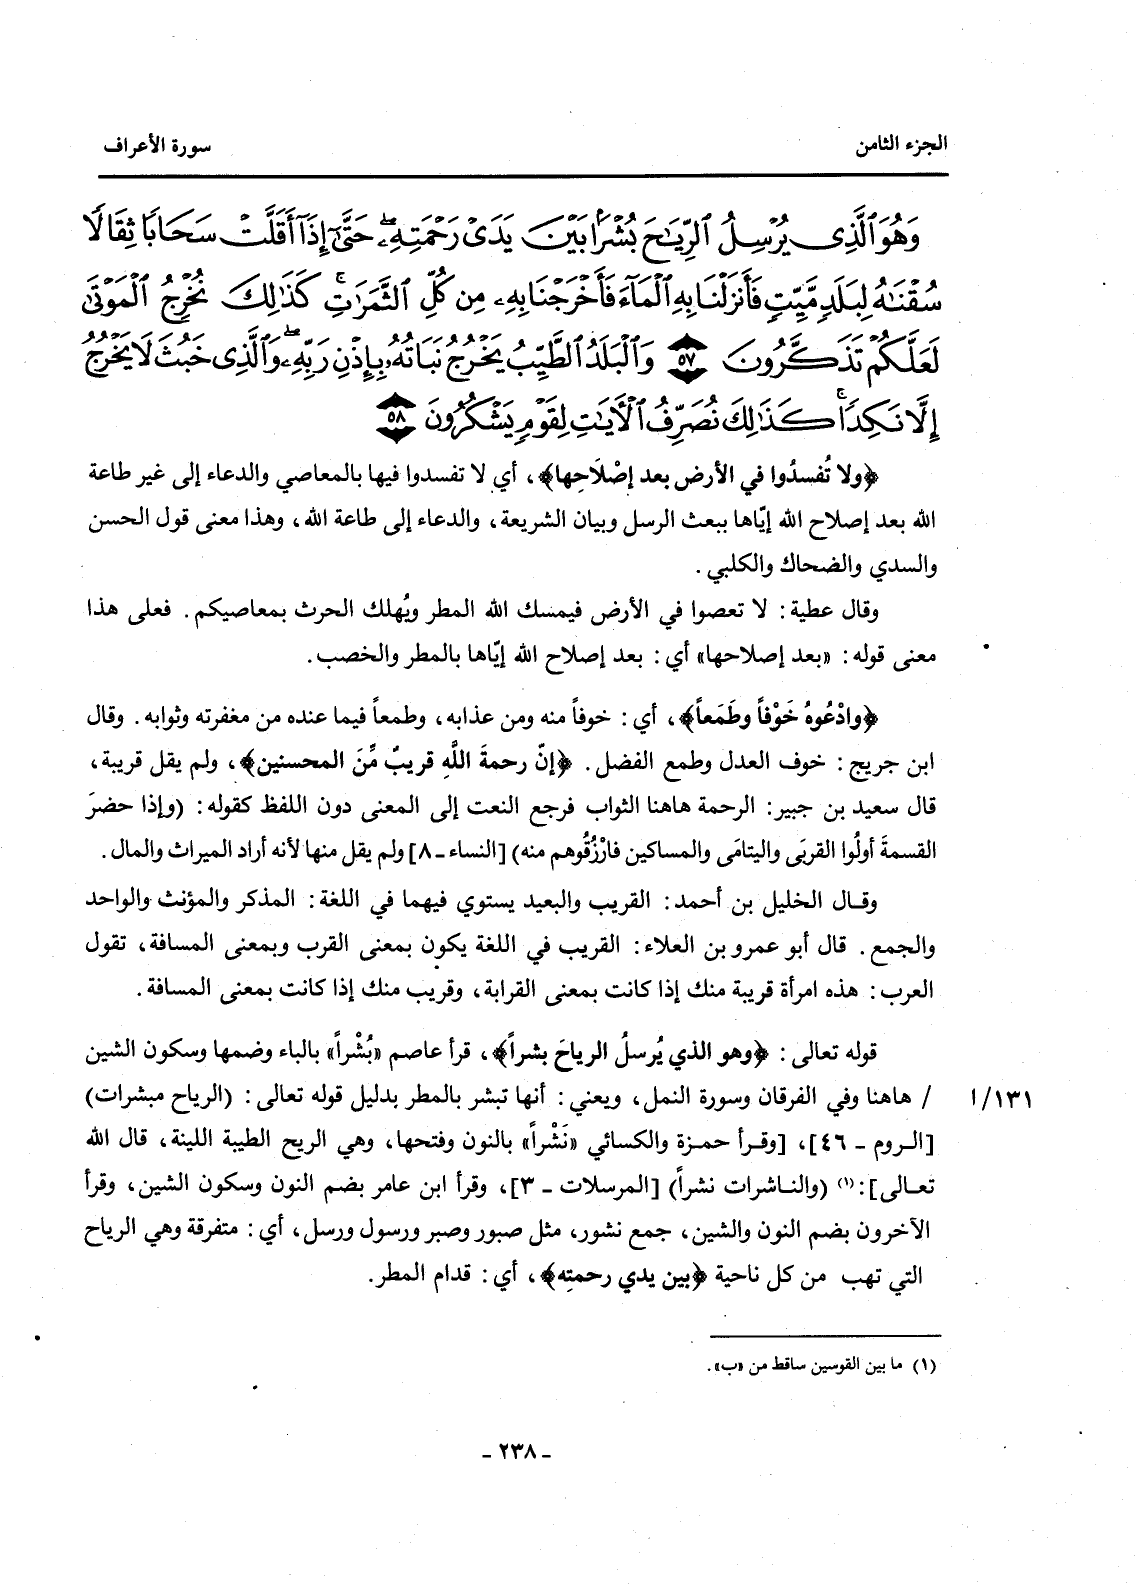 الجزء الثامن
سورة الأعراف
وَهُوَ ٱلَّذِى يُرْسِلُ ٱلرِّيَٰحَ بُشْرًۢا بَيْنَ يَدَىْ رَحْمَتِهِۦ ۖ حَتَّىٰٓ إِذَآ أَقَلَّتْ سَحَابًا ثِقَالًا
سُقْنَٰهُ لِبَلَدٍ مَّيِّتٍ فَأَنزَلْنَا بِهِ ٱلْمَآءَ فَأَخْرَجْنَا بِهِۦ مِن كُلِّ ٱلثَّمَرَٰتِ ۚ كَذَٰلِكَ نُخْرِجُ ٱلْمَوْتَىٰ
لَعَلَّكُمْ تَذَكَّرُونَ ٥٧ وَٱلْبَلَدُ ٱلطَّيِّبُ يَخْرُجُ نَبَاتُهُۥ بِإِذْنِ رَبِّهِۦ ۖ وَٱلَّذِى خَبُثَ لَا يَخْرُجُ
إِلَّا نَكِدًا ۚ كَذَٰلِكَ نُصَرِّفُ ٱلْأَيَٰتِ لِقَوْمٍ يَشْكُرُونَ ٥٨
﴿ولا تُفسدُوا في الأرض بعد إصْلَاحِها﴾، أي لا تفسدوا فيها بالمعاصي والدعاء إلى غير طاعة
الله بعد إصلاح الله إيّاها ببعث الرسل وبيان الشريعة، والدعاء إلى طاعة الله، وهذا معنى قول الحسن
والسدي والضحاك والكلبي.
وقال عطية: لا تعصوا في الأرض فيمسك الله المطر ويُهلك الحرث بمعاصيكم. فعلى هذا
معنى قوله: «بعد إصلاحها» أي: بعد إصلاح الله إيّاها بالمطر والخصب.
﴿وادْعُوهُ خَوْفاً وطَمَعاً﴾، أي: خوفاً منه ومن عذابه، وطمعاً فيما عنده من مغفرته وثوابه. وقال
ابن جريج: خوف العدل وطمع الفضل. ﴿إنّ رحمةَ اللَّهِ قريبٌ مِّنَ المحسنين﴾، ولم يقل قريبة،
قال سعيد بن جبير: الرحمة هاهنا الثواب فرجع النعت إلى المعنى دون اللفظ كقوله: (وإذا حضرَ
القسمةَ أولُوا القربَى واليتامَى والمساكين فارْزُقُوهم منه) [النساء ـ ٨] ولم يقل منها لأنه أراد الميراث والمال.
وقـال الخليل بن أحمد: القريب والبعيد يستوي فيهما في اللغة: المذكر والمؤنث والواحد
والجمع. قال أبو عمرو بن العلاء: القريب في اللغة يكون بمعنى القرب وبمعنى المسافة، تقول
العرب: هذه امرأة قريبة منك إذا كانت بمعنى القرابة، وقريب منك إذا كانت بمعنى المسافة.
قوله تعالى: ﴿وهو الذي يُرسلُ الرياحَ بشراً﴾، قرأ عاصم «بُشْراً» بالباء وضمها وسكون الشين
١٣١/أ / هاهنا وفي الفرقان وسورة النمل، ويعني: أنها تبشر بالمطر بدليل قوله تعالى: (الرياح مبشرات)
[الـروم ـ ٤٦]، [وقـرأ حمـزة والكسائي «نَشْراً» بالنون وفتحها، وهي الريح الطيبة اللينة، قال الله
تعـالى]:(١) (والنـاشرات نشراً) [المرسلات ـ ٣]، وقرأ ابن عامر بضم النون وسكون الشين، وقرأ
الآخرون بضم النون والشين، جمع نشور، مثل صبور وصبر ورسول ورسل، أي: متفرقة وهي الرياح
التي تهب من كل ناحية ﴿بين يدي رحمتِه﴾، أي: قدام المطر.
(١) ما بين القوسين ساقط من «ب».
ـ ٢٣٨ ـ